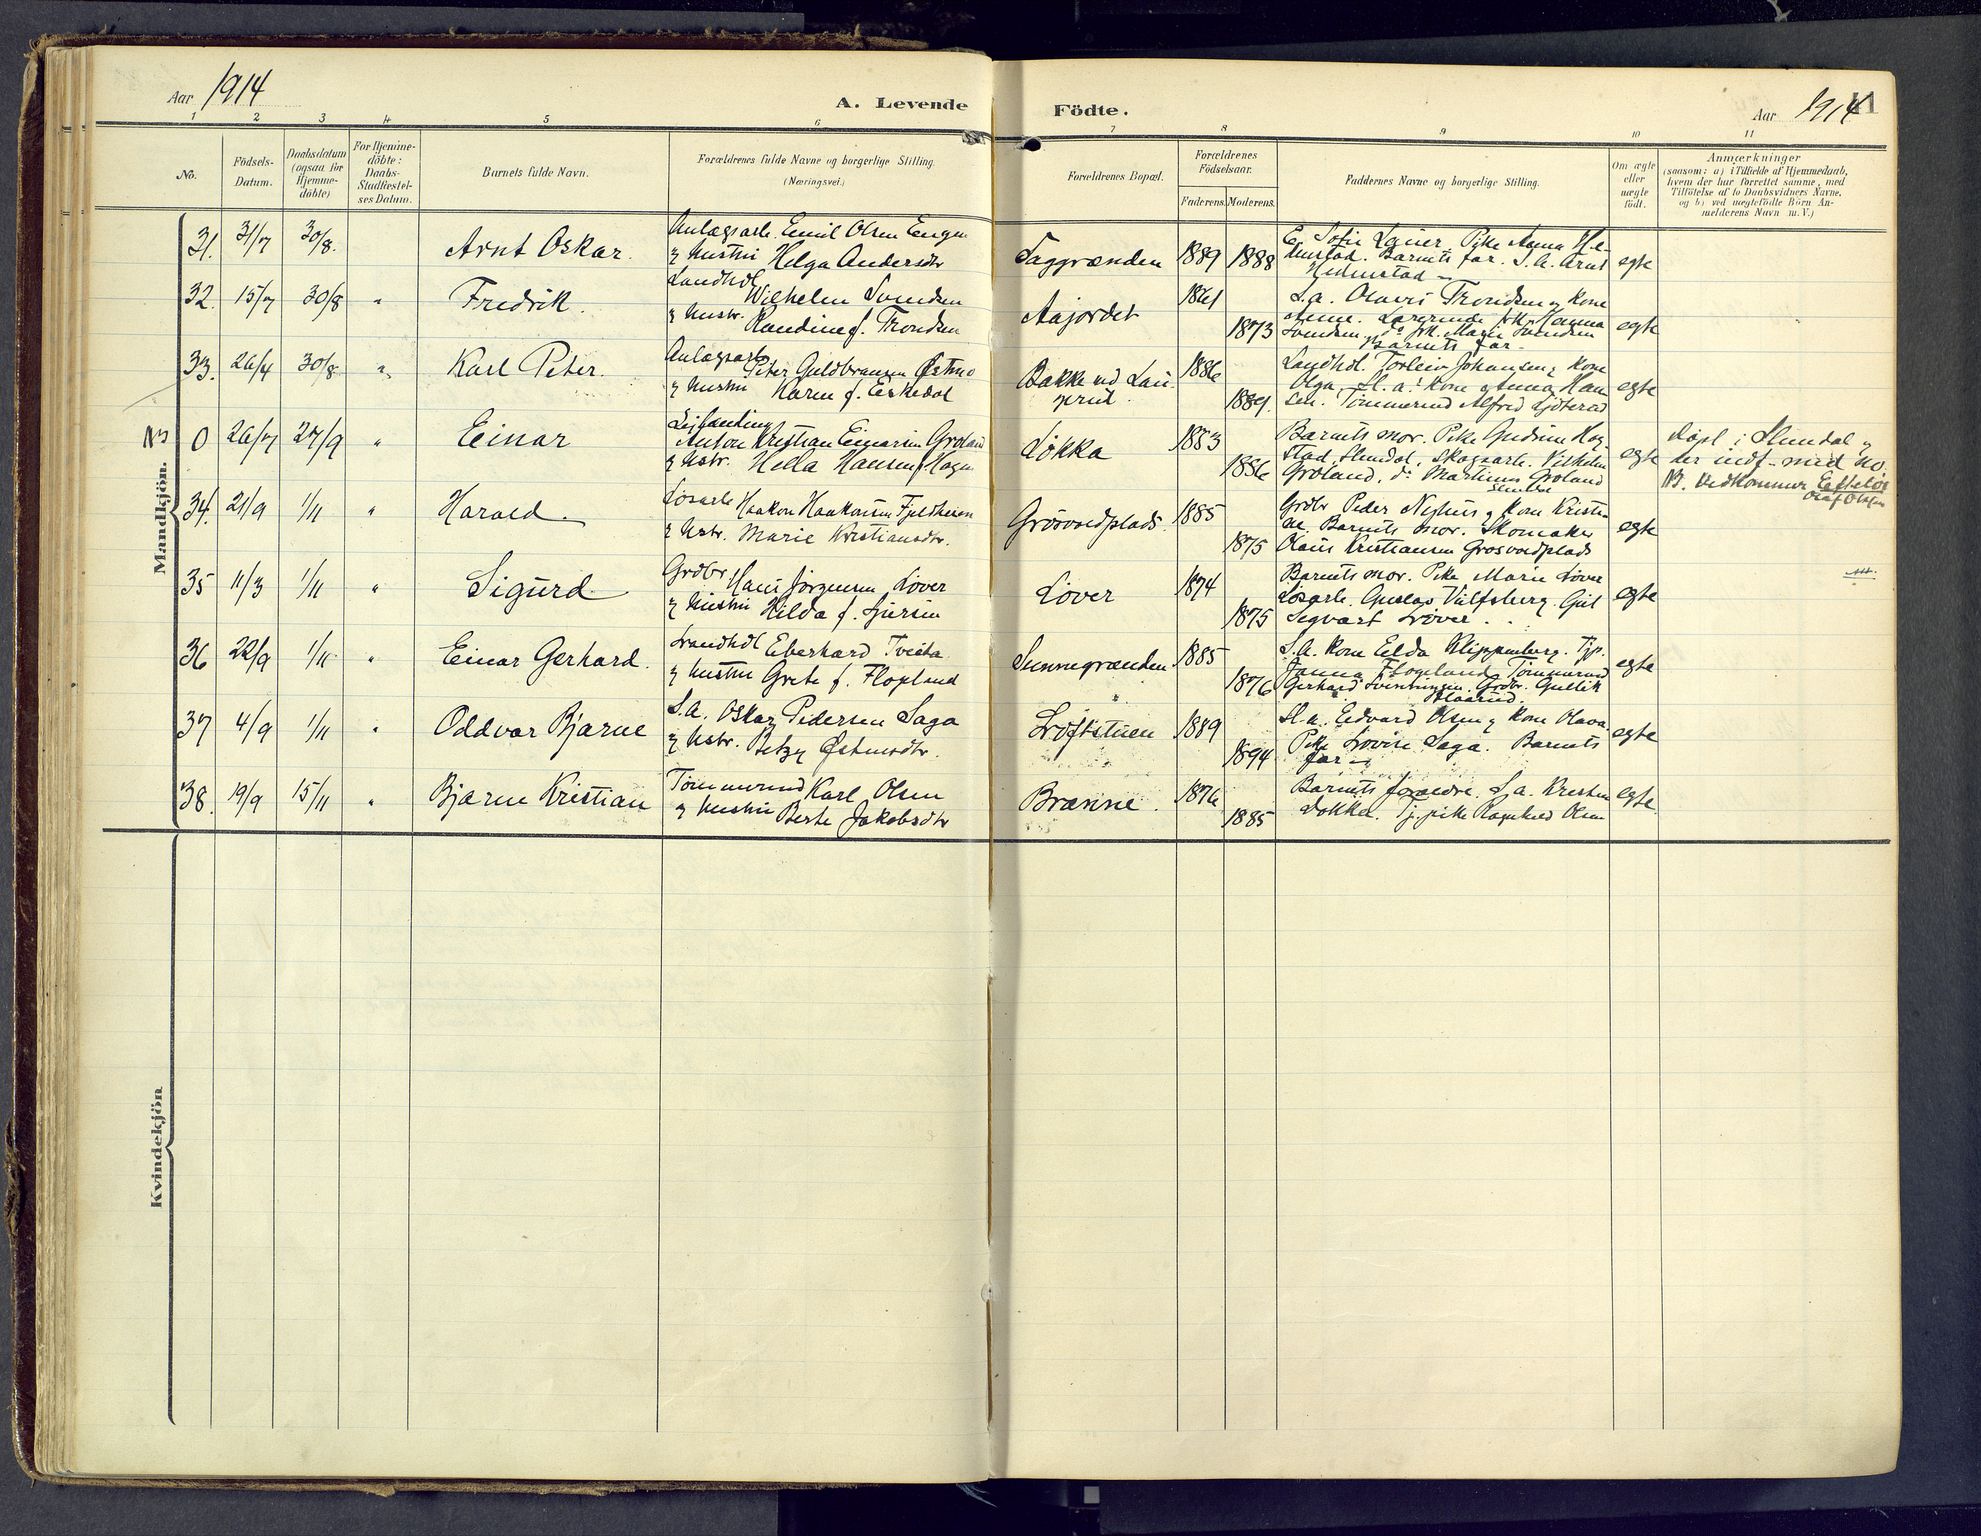 Aar 1914
A. Levende
Födte.
Aar 1914
11
1 2 3 4 5 6 7 8 9 10 11
No.
Födsels-
Datum.
Daabsdatum
(ogsaa for
Hjemme-
döbte)
For Hjemme-
döbte:
Daabs-
Stadfæstel-
ses Datum.
Barnets fulde Navn.
Forældrenes fulde Navne og borgerlige Stilling.
(Næringsvei.)
Forældrenes Bopæl.
Forældrenes
Födselsaar.
Faderens. Moderens.
Faddernes Navne og borgerlige Stilling.
Om ægte
eller
uægte
födt.
Anmærkninger
(saasom: a) i Tilfælde af Hjemmedaab,
hvem der har forrettet samme, med
Tilföielse af to Daabsvidners Navne,
og b) ved uægtefödte Börn An-
melderens Navn m. V.)
Mandkjön.
31. 31/7 30/8. Arnt Oskar.
Anlægsarb. Emil Olsen Engen
& hustru Helga Andersdtr
Saggrænden 1889 1888
Sofie Pike Anna
Barnets far. S. A. Arnt
egte
32. 15/7 30/8 " Fredrik.
Landhdl
Wilhelm Svendsen
& hustr. Randine f. Trondsen
Aajordet 1861
1873
S.a. Olavis Trondsen & kone
Anna. Lærerinde frk. Hanna
Svendsen, do frk. Marie Svendsen
Barnets far.
egte
33. 26/4 30/8 " Karl Peter.
Anlægsarb
Peter Guldbransen Østmo
& hustru Karen f. Eskedal
Bakke ved Lau
gerud. 1886
1889.
Landhdl. Torleiv Johansen & kone
Olga. S.a. kone Anna Han
sen. Tømmermd Alfred
egte
No 0 26/7 27/9 " Einar
Anton Kristian Einarsen Groland
& hstr. Hella Hansen f. Hagen
Løkka 1883
1886
Barnets mor. Pike Gudrun Hag-
stad, Slemdal, Skogsarb. Vilhelm
Groland, do Martinus Groland
Slemdal
egte
døpt i Slemdal &
der indf. med no.
NB. vedkommer Efteløt
Olaf Olsen
34. 21/9 1/11 " Harald.
Løsarb Haakon Haakonsen Fjeldheim
& hstr. Marie Kristiansdtr.
Grosvoldplads. 1885
1875
Grdbr Peder Nyhus & kone Kristi-
ne. Barnets mor. Skomaker
Olaus Kristiansen Grosvoldplads
egte
35 11/3 1/11 " Sigurd
Grdbr
Hans Jørgensen Løver
& hustru Hilda f. Sjursen
Løver 1874
1875
Barnets mor. Pike Marie Løver
Løsarb. Gustav Ulfsberg. Gut
Segvart Løver.
egte
36 22/9 1/11 " Einar Gerhard.
Landhdl Eberhard Tveita
& hustru Grete f. Flopland
Sunnegrænden 1885
1876
S.A. kone Elda Klippenberg. Tjp.
Janna Flopland. Tømmermd
Gerhard Grdbr. Gullik
egte
37 4/9 1/11 " Oddvar Bjarne
S.a. Oskar Pedersen Saga
& hstr. Betzy Østensdtr.
Loftstuen 1889
1894
S.a. Edvard Olsen & kone Olava.
Pike Lovise Saga. Barnets
far
egte
38. 19/9 15/11 " Bjarne Kristian
Tømmermd Karl Olsen
& hustru Berte Jakobsdtr
Brænne. 1876
1885
Barnets forældre. S.a. Kristen
Dokka. Tj. pike Ragnhild Olsen
egte
Kvindekjön